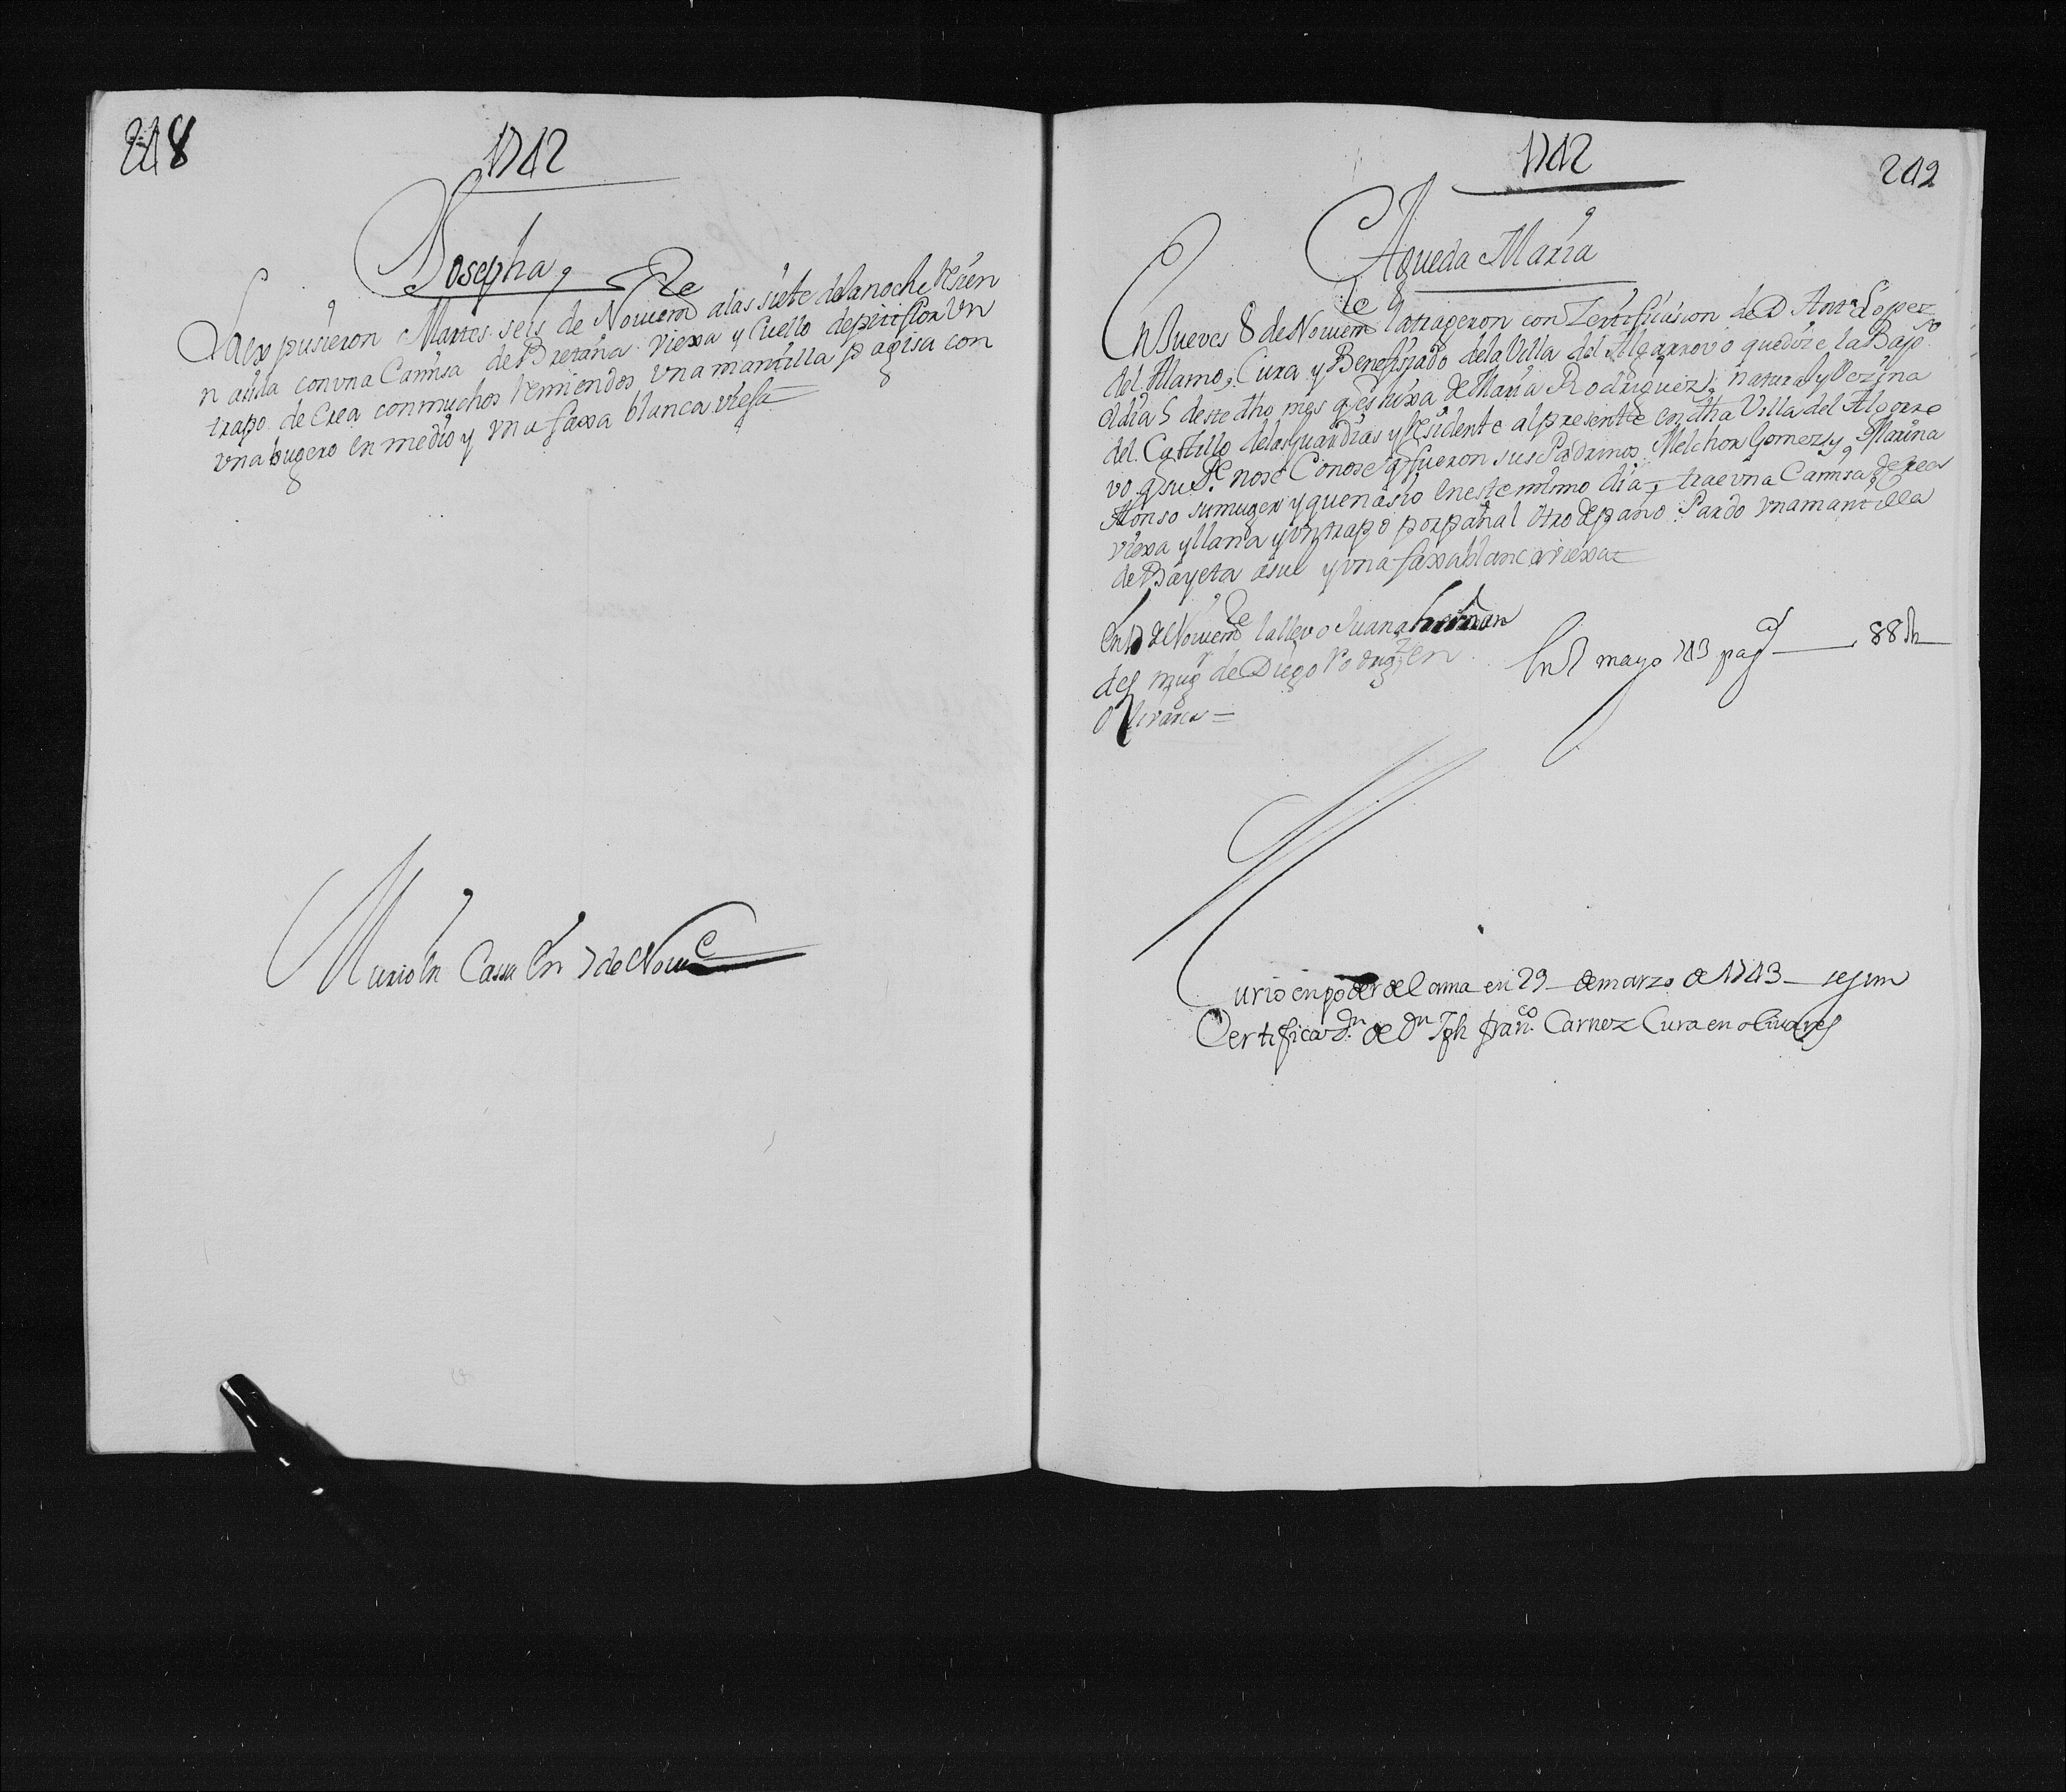 218
1742
Josepha
La expusieron Martes seis de Noviem.re a las siete de la noche Resien
nasida con una Camisa de Bretaña viexa y Cuello de pitiflor Un
trapo de Crea con muchos Remiendos Una mantilla pagisa con
Un abugero En medio y una faxa blanca viesa
Murio En Casa En 7 de Nov.e
1742
242
Agueda Maria
En Jueves 8 de Noviem.re la trageron con Zertificasion de D. Ant.o Lopez
del Alamo, Cura y Benefisiado de la Villa del Algarrovo que dize la Bap.o
el dia 5 deste dho mes q es hixa de Maria Rodriguez, natural y Vezina
del Castillo de las guardias y Residente al presente en dha Villa del Algarro
vo q su P.e no se Conose q fueron sus Padrinos Melchor Gomez y Marina
Alonso su muger y que nasio En este mismo dia, trae una Camisa de Crea
viexa y llana y un trapo por pañal Otro de paño Pardo una mantilla
de Bayeta asul y una faxa blanca viexa
En 17 de Noviem.re la llevo Juana Hernan
des mug.r de Diego Rodrig.z en
Olivares =
En 7 mayo 743 pag.d 88 R
Murio en poder del ama en 29 de marzo de 1743 segun
Certificaz.n de D.n Jph Fran.co Carnez Cura en olivares